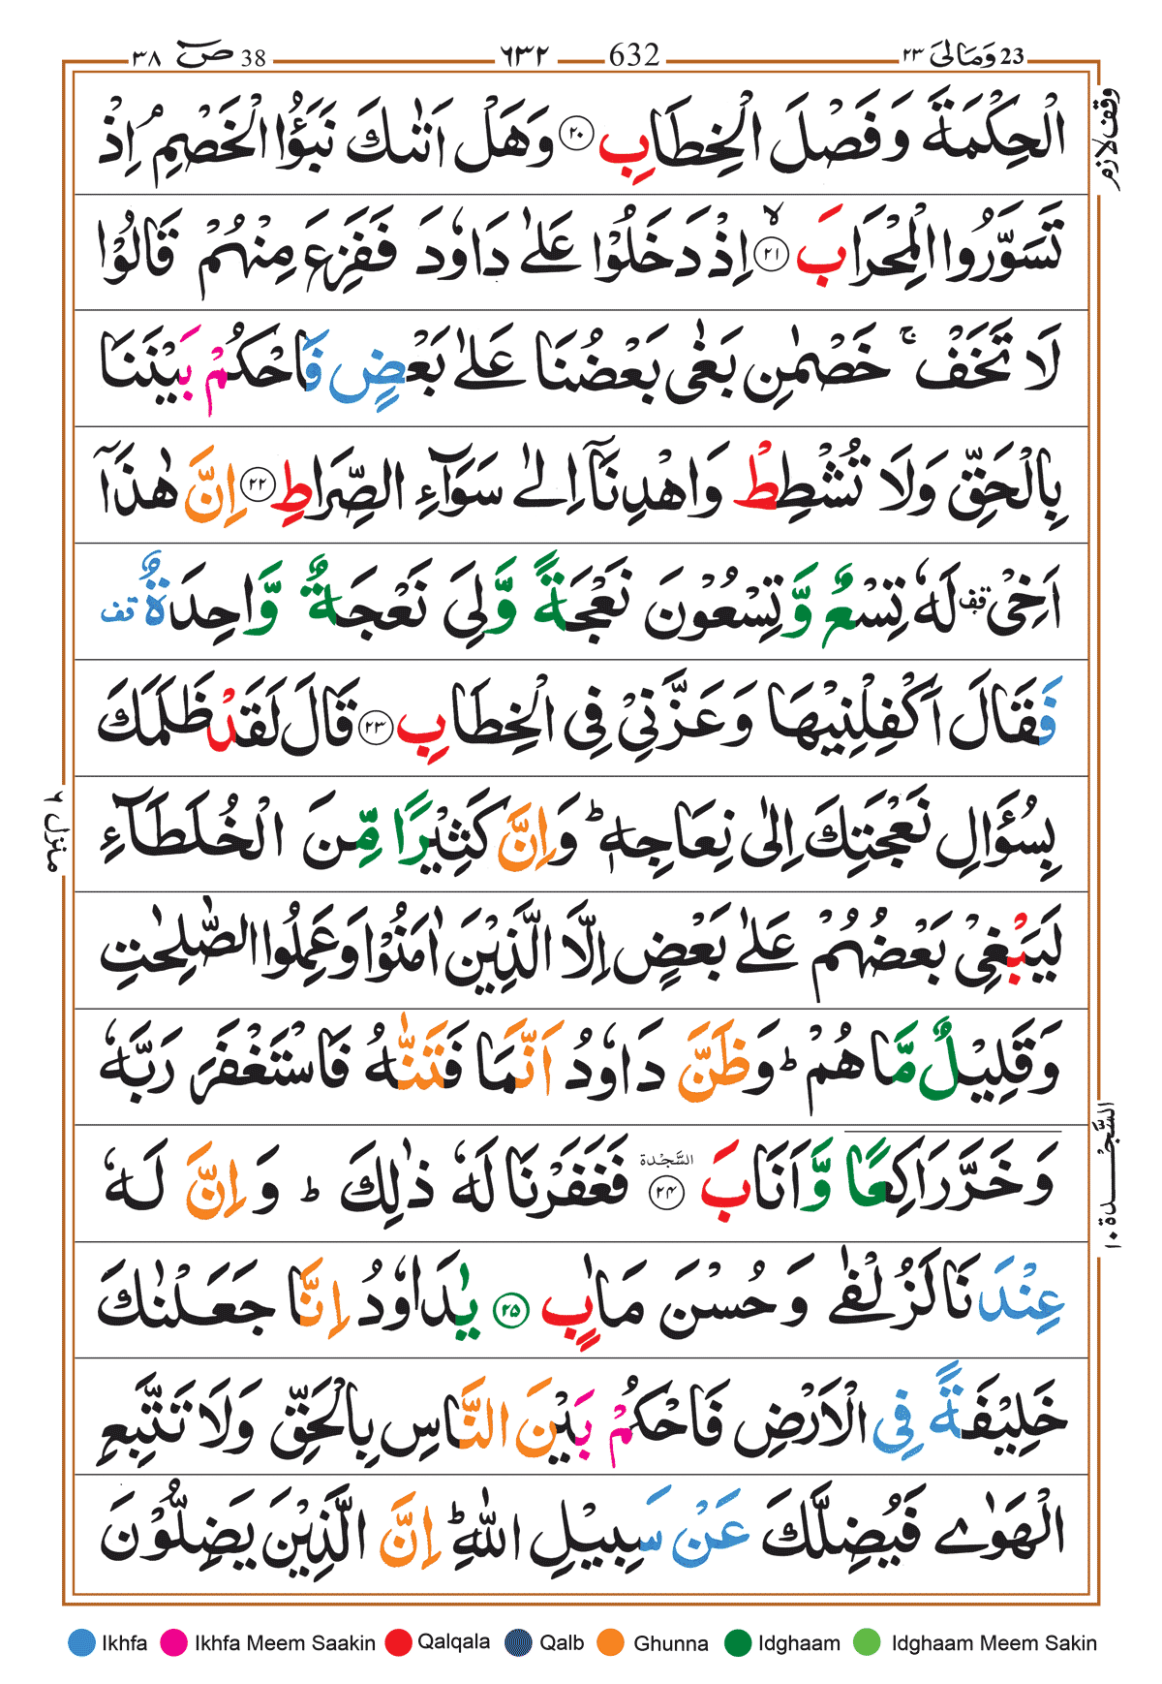 38 صٓ ٣٨ 632 ٦٣٢ 23 وَمَالِیَ ٢٣
وقف لازم
الْحِكْمَةَ وَ فَصْلَ الْخِطَابِ ٢٠ وَهَلْ اَتٰىكَ نَبَؤُا الْخَصْمِ ۘ اِذْ
تَسَوَّرُوا الْمِحْرَابَ ۙ ٢١ اِذْ دَخَلُوْا عَلٰى دَاوٗدَ فَفَزِعَ مِنْهُمْ قَالُوْا
لَا تَخَفْ ۚ خَصْمٰنِ بَغٰى بَعْضُنَا عَلٰى بَعْضٍ فَاحْكُمْ بَيْنَنَا
بِالْحَقِّ وَلَا تُشْطِطْ وَاهْدِنَاۤ اِلٰى سَوَآءِ الصِّرَاطِ ٢٢ اِنَّ هٰذَاۤ
اَخِيْ قف لَهٗ تِسْعٌ وَّتِسْعُوْنَ نَعْجَةً وَّلِيَ نَعْجَةٌ وَّاحِدَةٌ قف
فَقَالَ اَكْفِلْنِيْهَا وَعَزَّنِيْ فِي الْخِطَابِ ٢٣ قَالَ لَقَدْ ظَلَمَكَ
بِسُؤَالِ نَعْجَتِكَ اِلٰى نِعَاجِهٖ ؕ وَاِنَّ كَثِيْرًا مِّنَ الْخُلَطَآءِ
منزل ٦
لَيَبْغِيْ بَعْضُهُمْ عَلٰى بَعْضٍ اِلَّا الَّذِيْنَ اٰمَنُوْا وَعَمِلُوا الصّٰلِحٰتِ
وَقَلِيْلٌ مَّا هُمْ ؕ وَظَنَّ دَاوٗدُ اَنَّمَا فَتَنّٰهُ فَاسْتَغْفَرَ رَبَّهٗ
وَخَرَّ رَاكِعًا وَّاَنَابَ السَّجْدَة ٢٤ فَغَفَرْنَا لَهٗ ذٰلِكَ ؕ وَ اِنَّ لَهٗ
السَّجْدَة ١٠
عِنْدَنَا لَزُلْفٰى وَ حُسْنَ مَاٰبٍ ٢٥ يٰدَاوٗدُ اِنَّا جَعَلْنٰكَ
خَلِيْفَةً فِي الْاَرْضِ فَاحْكُمْ بَيْنَ النَّاسِ بِالْحَقِّ وَلَا تَتَّبِعِ
الْهَوٰى فَيُضِلَّكَ عَنْ سَبِيْلِ اللّٰهِ ؕ اِنَّ الَّذِيْنَ يَضِلُّوْنَ
Ikhfa Ikhfa Meem Saakin Qalqala Qalb Ghunna Idghaam Idghaam Meem Sakin